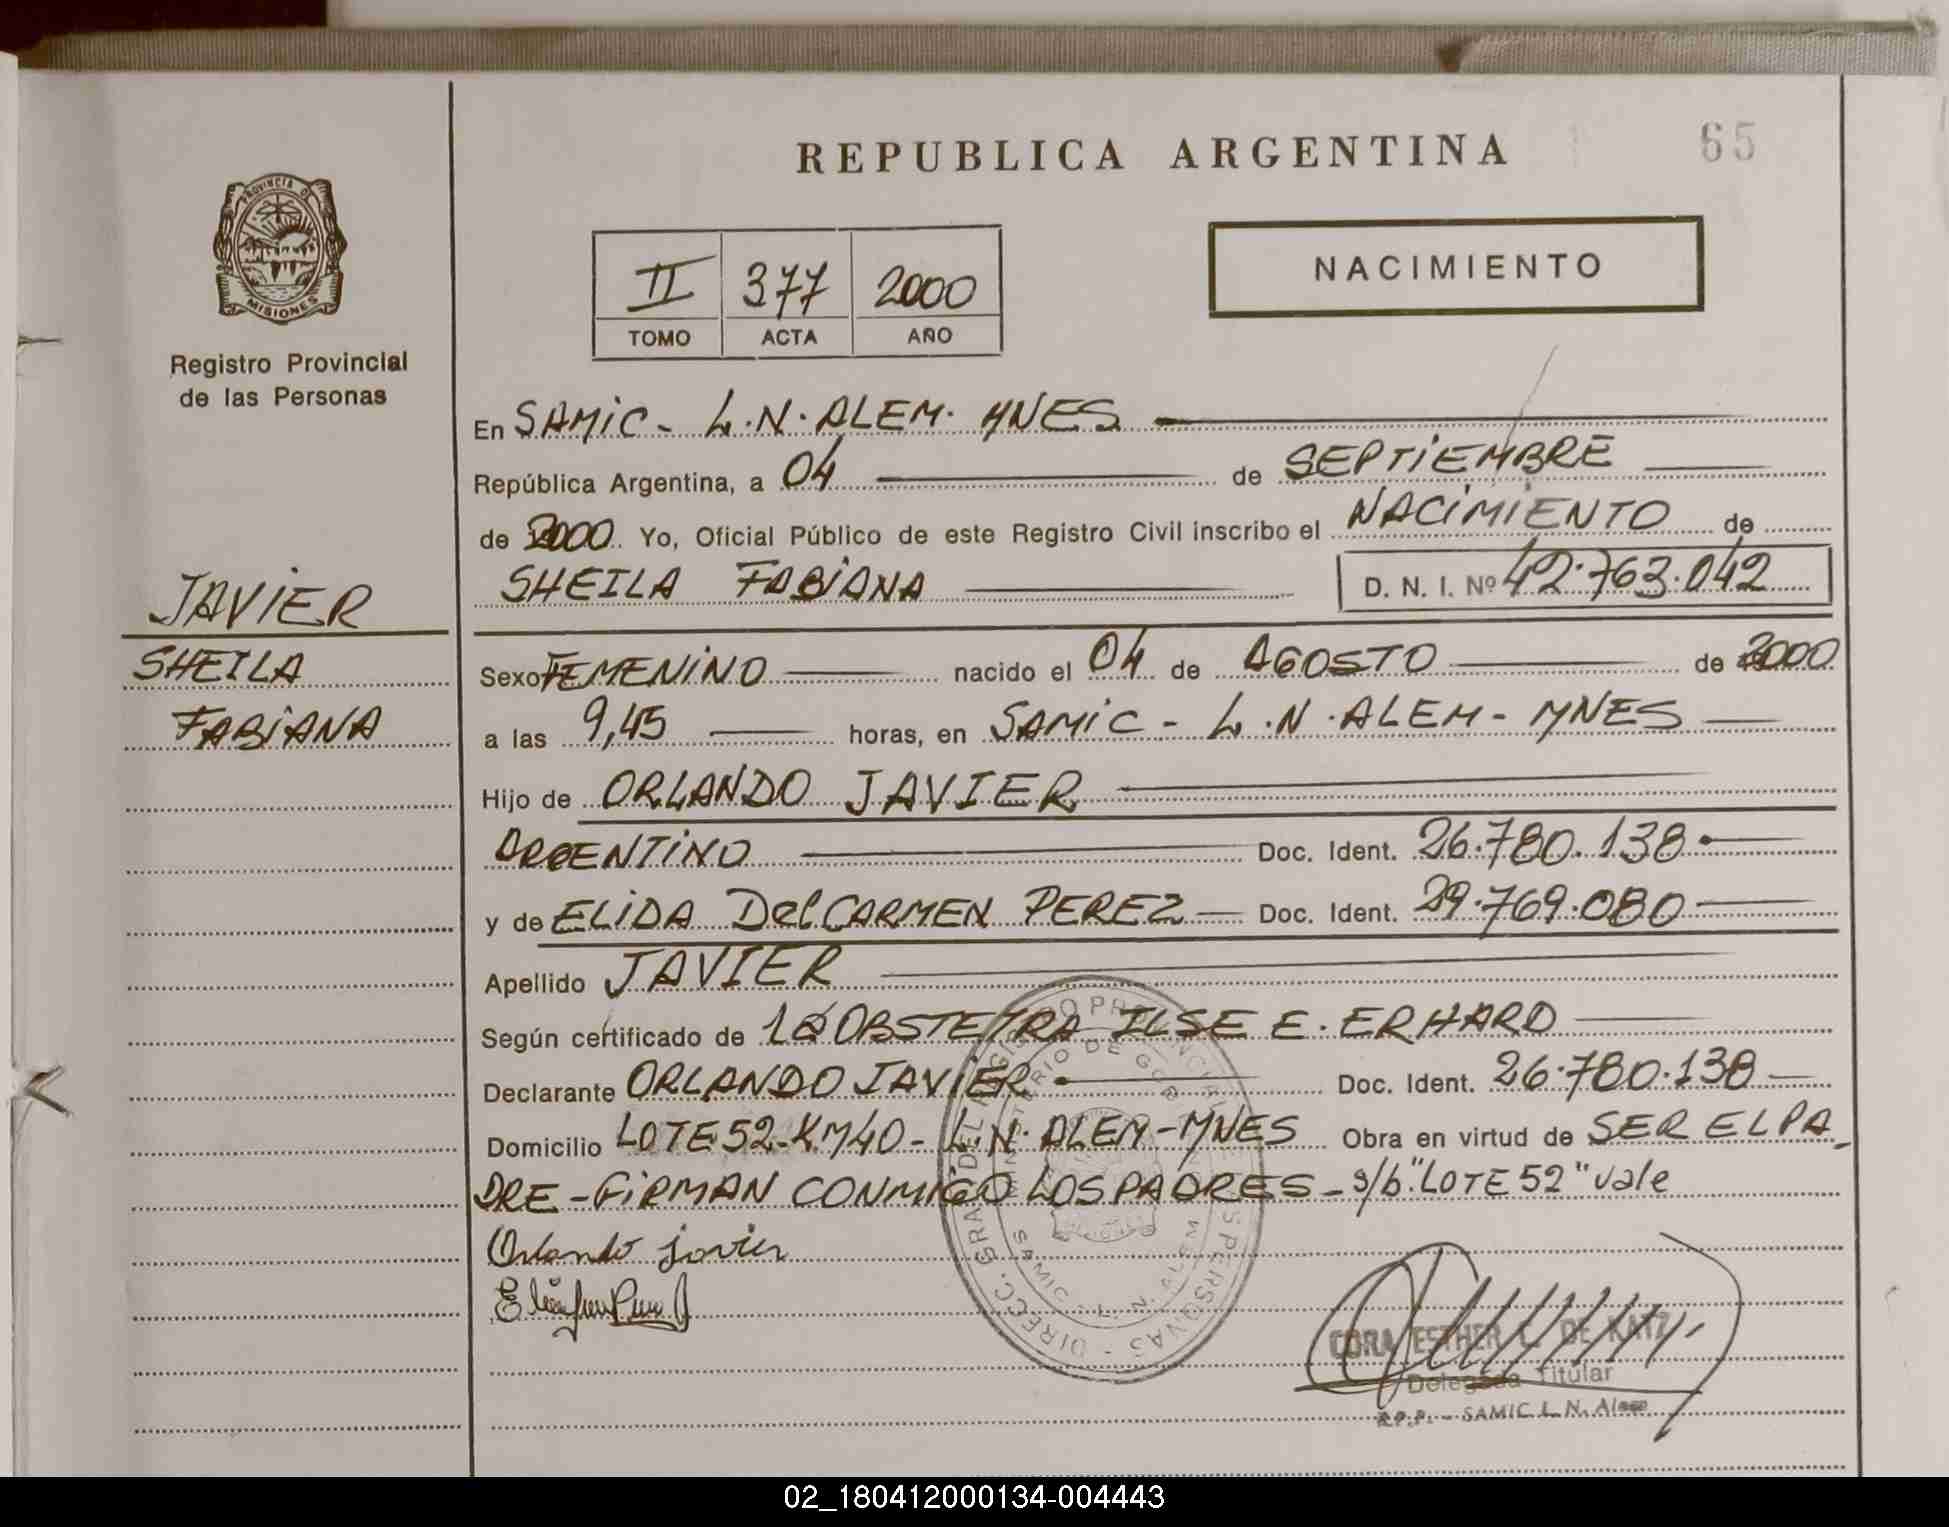 REPUBLICA ARGENTINA
65
PROVINCIA DE
MISIONES
Registro Provincial
de las Personas
II 377 2000
TOMO ACTA AÑO
NACIMIENTO
En SAMIC - L.N. ALEM. MNES
República Argentina, a 04 de SEPTIEMBRE
de 2000 Yo, Oficial Público de este Registro Civil inscribo el NACIMIENTO de
SHEILA FABIANA D. N. I. Nº 42.763.042
JAVIER
SHEILA
FABIANA
Sexo FEMENINO nacido el 04 de AGOSTO de 2000
a las 9,45 horas, en SAMIC - L.N. ALEM - MNES
Hijo de ORLANDO JAVIER
ARGENTINO Doc. Ident. 26.780.138
y de ELIDA Del CARMEN PEREZ Doc. Ident. 29.769.080
Apellido JAVIER
Según certificado de la OBSTETRA ILSE E. ERHARD
Declarante ORLANDO JAVIER Doc. Ident. 26.780.138
Domicilio LOTE 52-KM40- L.N. ALEM-MNES Obra en virtud de SER EL PA-
DRE - FIRMAN CONMIGO LOS PADRES - s/b "LOTE 52" vale
Orlando javier
CORA ESTHER DE KATZ
Delegada Titular
R.P.P. - SAMIC L. N. Alem
DIRECC. GRAL. DEL REGISTRO PROVINCIAL DE LAS PERSONAS
MINISTERIO DE GOB
SAMIC - L. N. ALEM
02_180412000134-004443